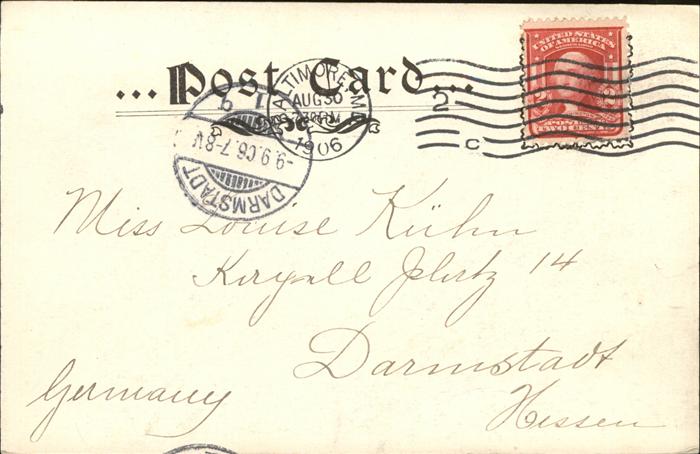 ...Post Card...
UNITED STATES
OF AMERICA
POSTAGE
TWO CENTS
2
BALTIMORE, MD.
AUG 30
1906
2
C
-9.9.06.7-8V.
DARMSTADT
Miss Louise Kühn
14
Darmstadt
Germany
Hessen